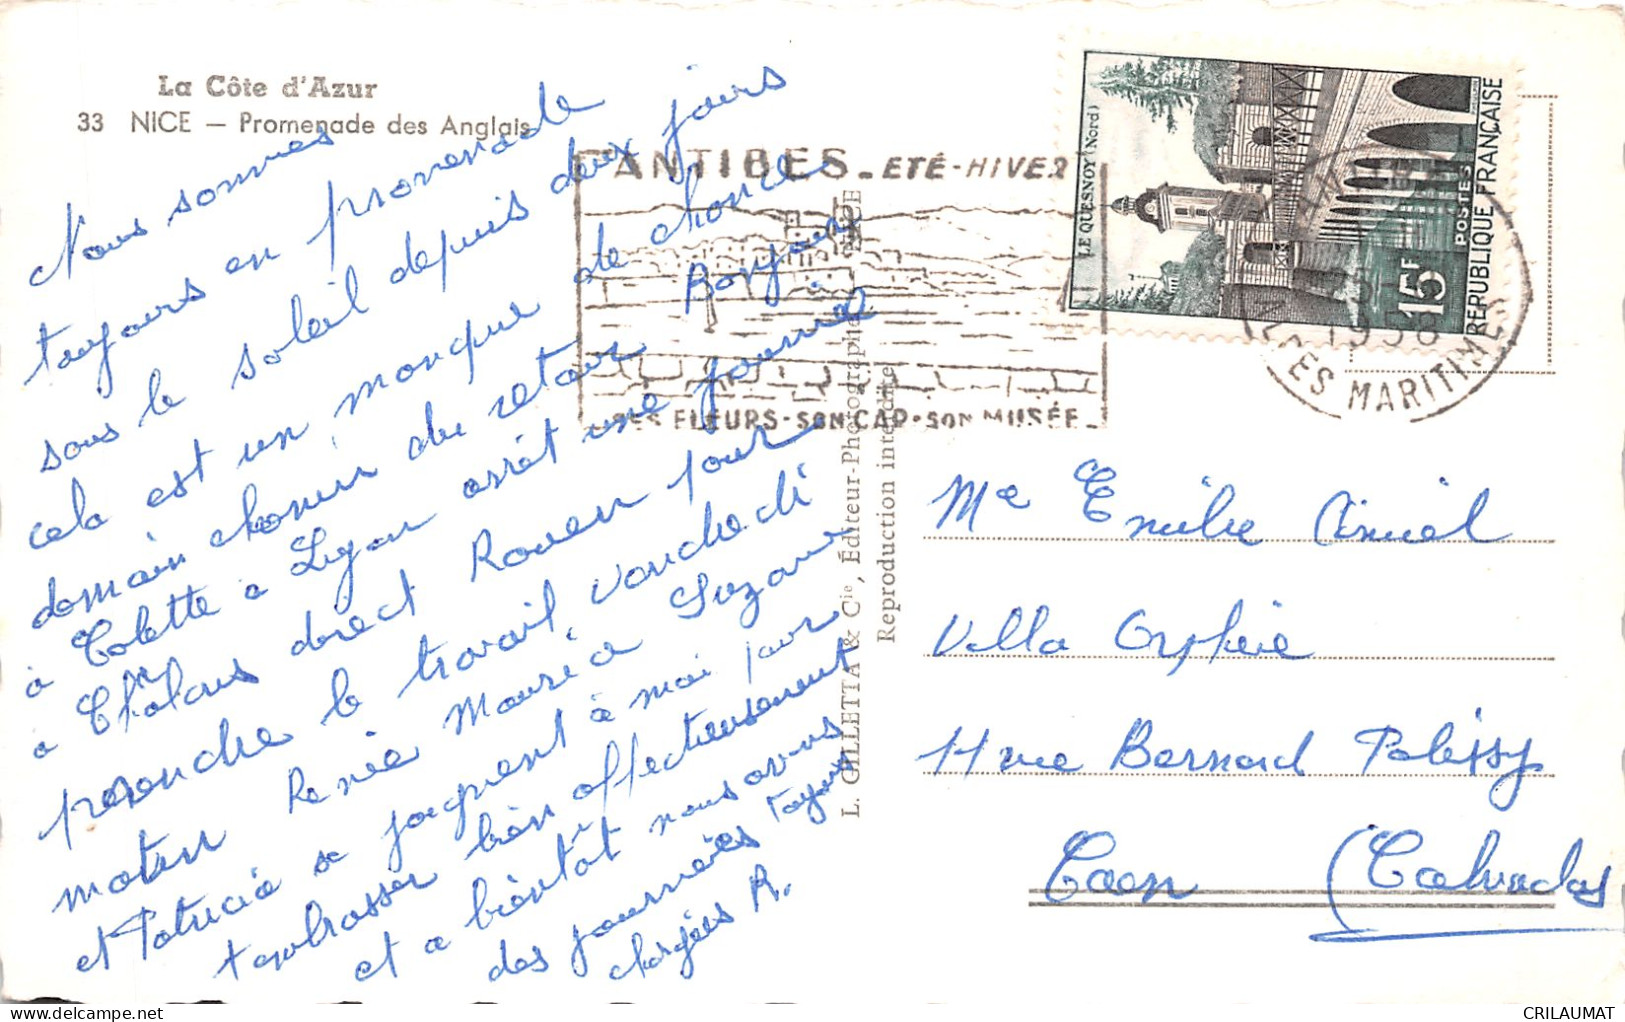 La Côte d'Azur
33 NICE — Promenade des Anglais
Nous sommes
toujours en promenade
sous le soleil depuis deux jours
cela est un manque de chance
demain chemin du retour Bonjour
à Colette à Lyon arrêt une journée
à Chalons direct Rouen pour
prendre le travail vendredi
matin Renée Maurice Suzanne
et Patricia se joignent à moi pour
t'embrasser bien affectueusement
et à bientôt nous avons
des journées toujours
chargées R.
ANTIBES - ETÉ - HIVER
SES FLEURS - SON CAP - SON MUSÉE
L. GILLETTA & Cie, Éditeur-Photographe, NICE
Reproduction interdite
LE QUESNOY (Nord)
POSTES
15F
RÉPUBLIQUE FRANÇAISE
1958
ALPES MARITIMES
Me Emilie Amiel
Villa Orphée
11 rue Bernard Palissy
Caen (Calvados
CRILAUMAT